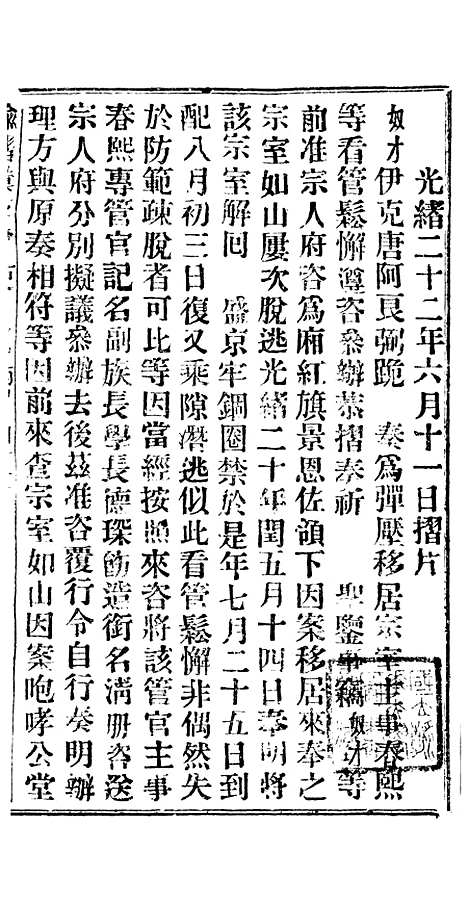 光緖二十二年六月十一日摺片
奴才伊克唐阿良弼跪　奏爲彈壓移居宗室主事春熙
等看管鬆懈遵咨叅辦恭摺奏祈　聖鑒事竊奴才等
前准宗人府咨爲廂紅旗景恩佐領下因案移居來奉之
宗室如山屢次脫逃光緖二十年閏五月十四日奉明將
該宗室解回　盛京牢鎖圈禁於是年七月二十五日到
配八月初三日復又乘隙潛逃似此看管鬆懈非偶然失
於防範疎脫者可比等因當經按照來咨將該管官主事
春熙專管官記名副族長學長德琛飭造銜名淸册咨送
宗人府分別擬議叅辦去後茲准咨覆行令自行奏明辦
理方與原奏相符等因前來查宗室如山因案咆哮公堂